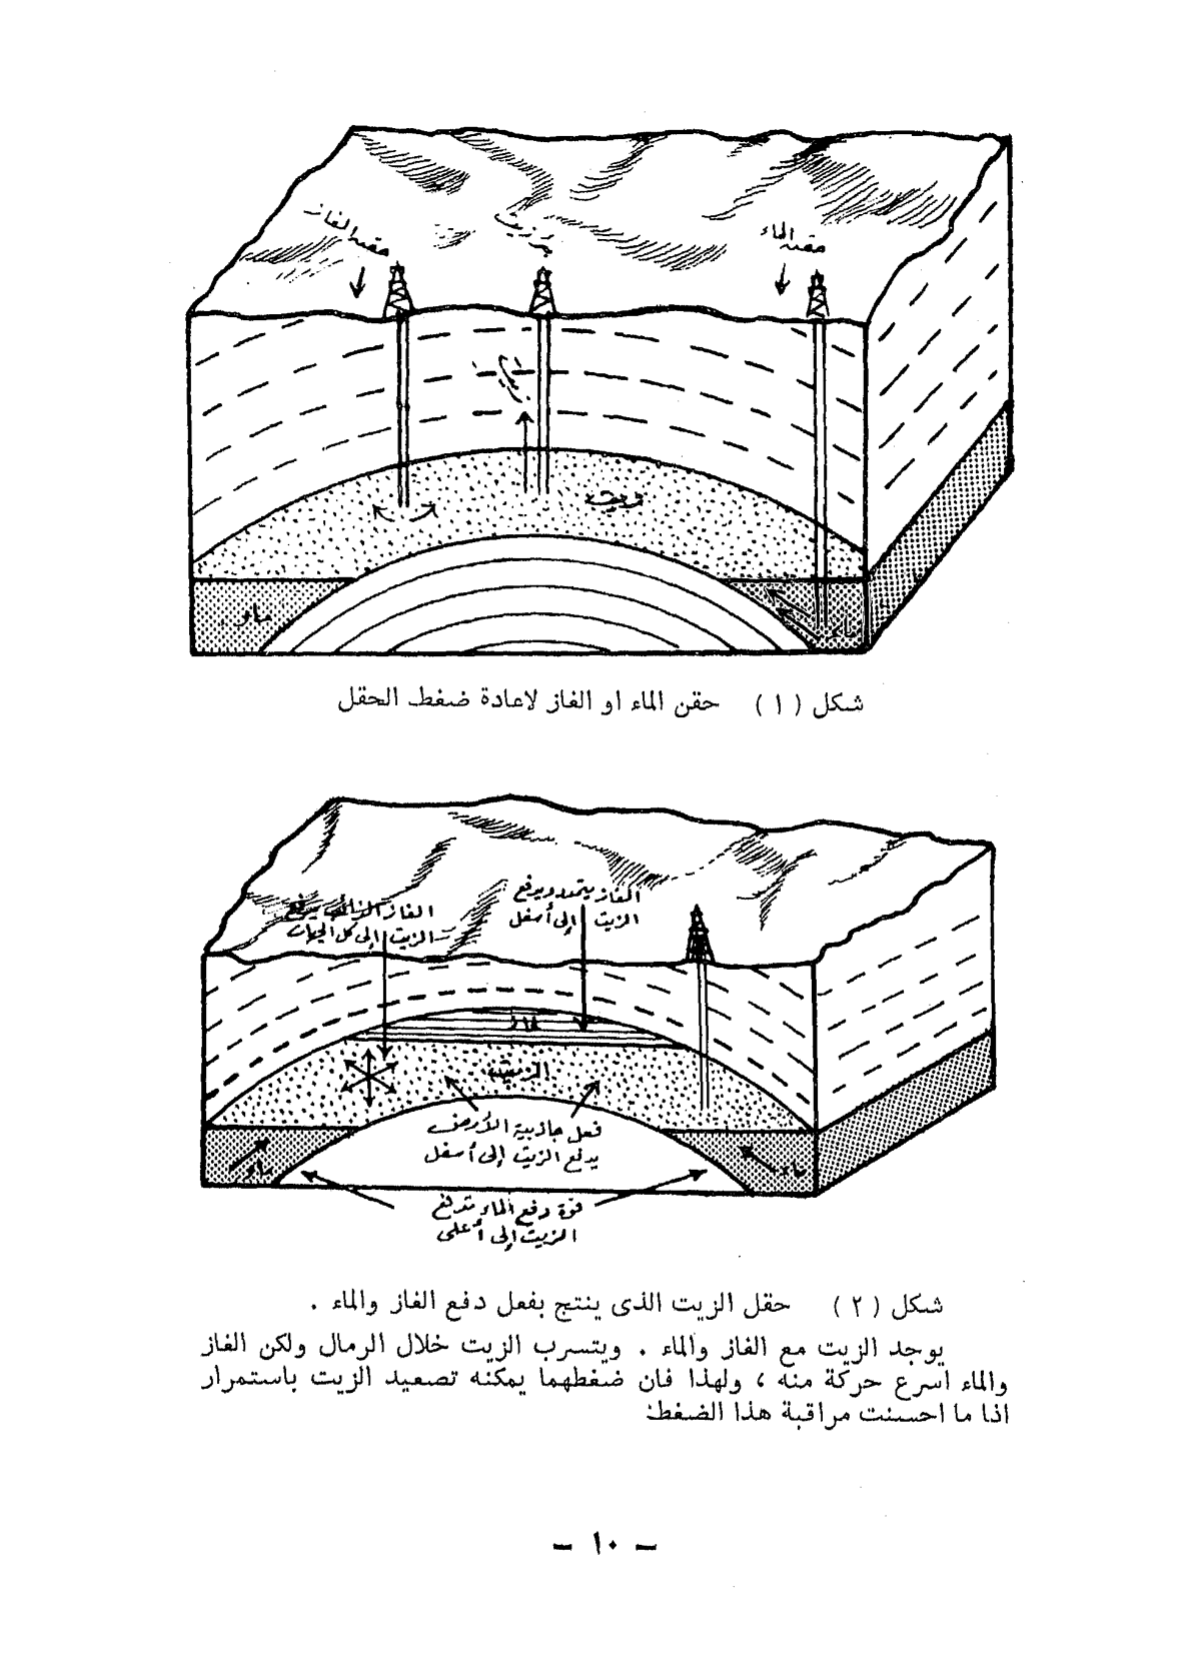 حقن الغاز
بئر زيت
حقن الماء
زيت
ماء
ماء
شكل ( ١ ) حقن الماء او الغاز لاعادة ضغط الحقل
الغاز يتمدد ويدفع
الزيت إلى أسفل
الغاز الذائب يدفع
الزيت إلى كل الجهات
غاز
الزيت
فعل جاذبية الأرض
يدفع الزيت إلى أسفل
ماء
ماء
قوة دفع الماء تدفع
الزيت إلى أعلى
شكل ( ٢ ) حقل الزيت الذى ينتج بفعل دفع الغاز والماء .
يوجد الزيت مع الغاز والماء . ويتسرب الزيت خلال الرمال ولكن الغاز
والماء اسرع حركة منه ، ولهذا فان ضغطهما يمكنه تصعيد الزيت باستمرار
اذا ما احسنت مراقبة هذا الضغط:
– ١٠ –